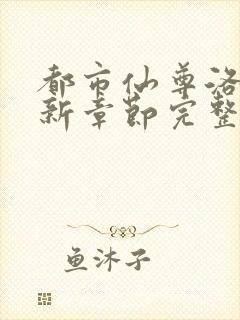 都市仙尊洛
新章节完整
鱼沐子